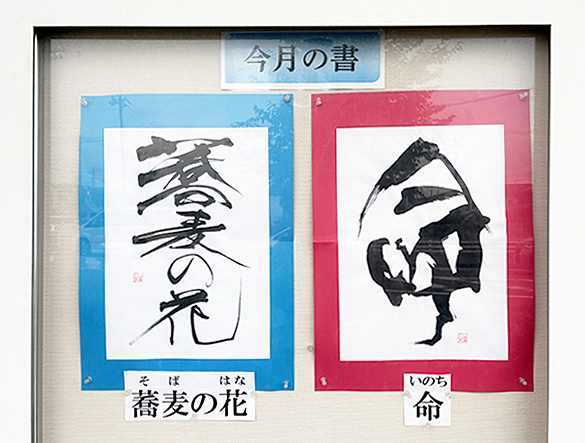 今月の書
蕎麦の花
命
そば はな
蕎麦の花
いのち
命